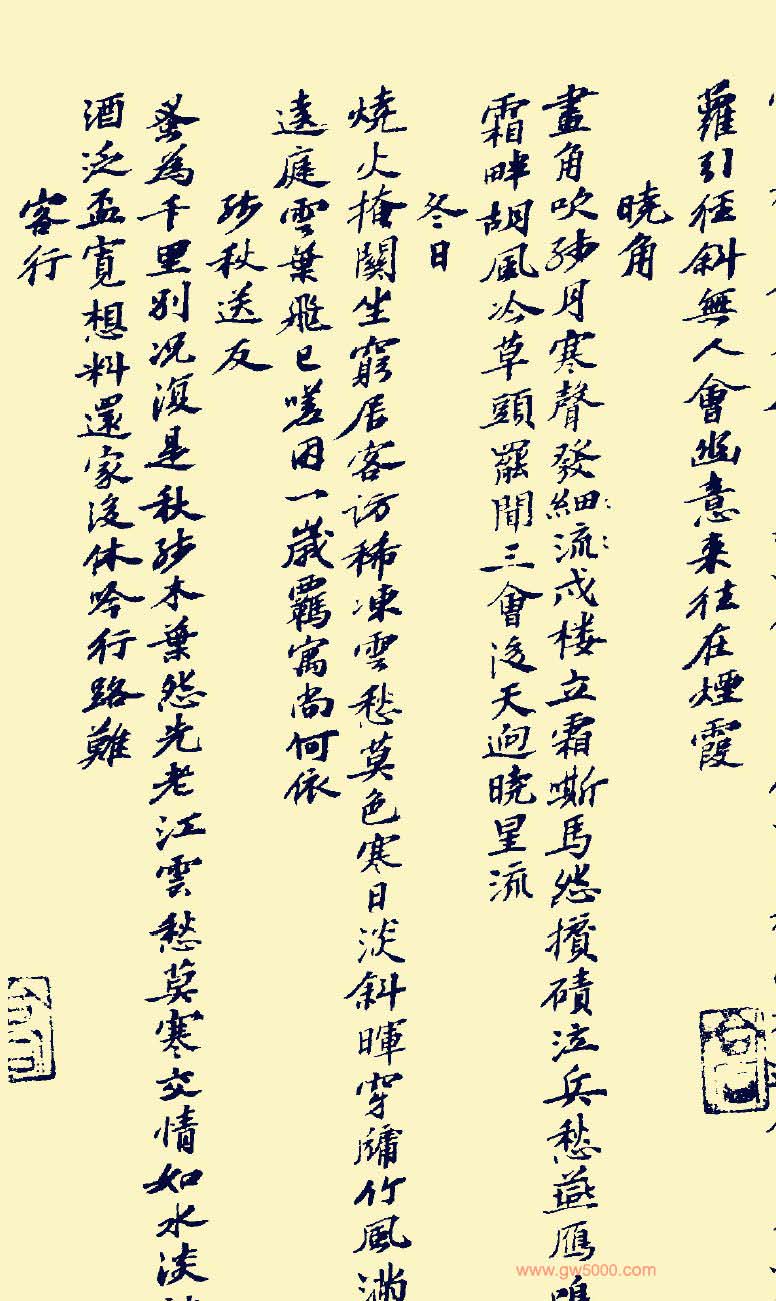 蘿引徑斜無人會幽意来往在煙霞
曉角
畫角吹殘月寒聲發細流戍楼立霜嘶馬怨攢磧泣兵愁燕鴈鳴
霜畔胡風冷草頭罷聞三會後天迥曉星流
冬日
燒火掩關坐窮居客訪稀凍雲愁莫色寒日淡斜暉穿牖竹風滿
遶庭雲葉飛已嗟因一歲羈寓尚何依
殘秋送友
蚤為千里别况復是秋殘木葉怨先老江雲愁莫寒交情如水淡
酒泛盃寬想料還家後休吟行路難
客行
www.gw5000.com